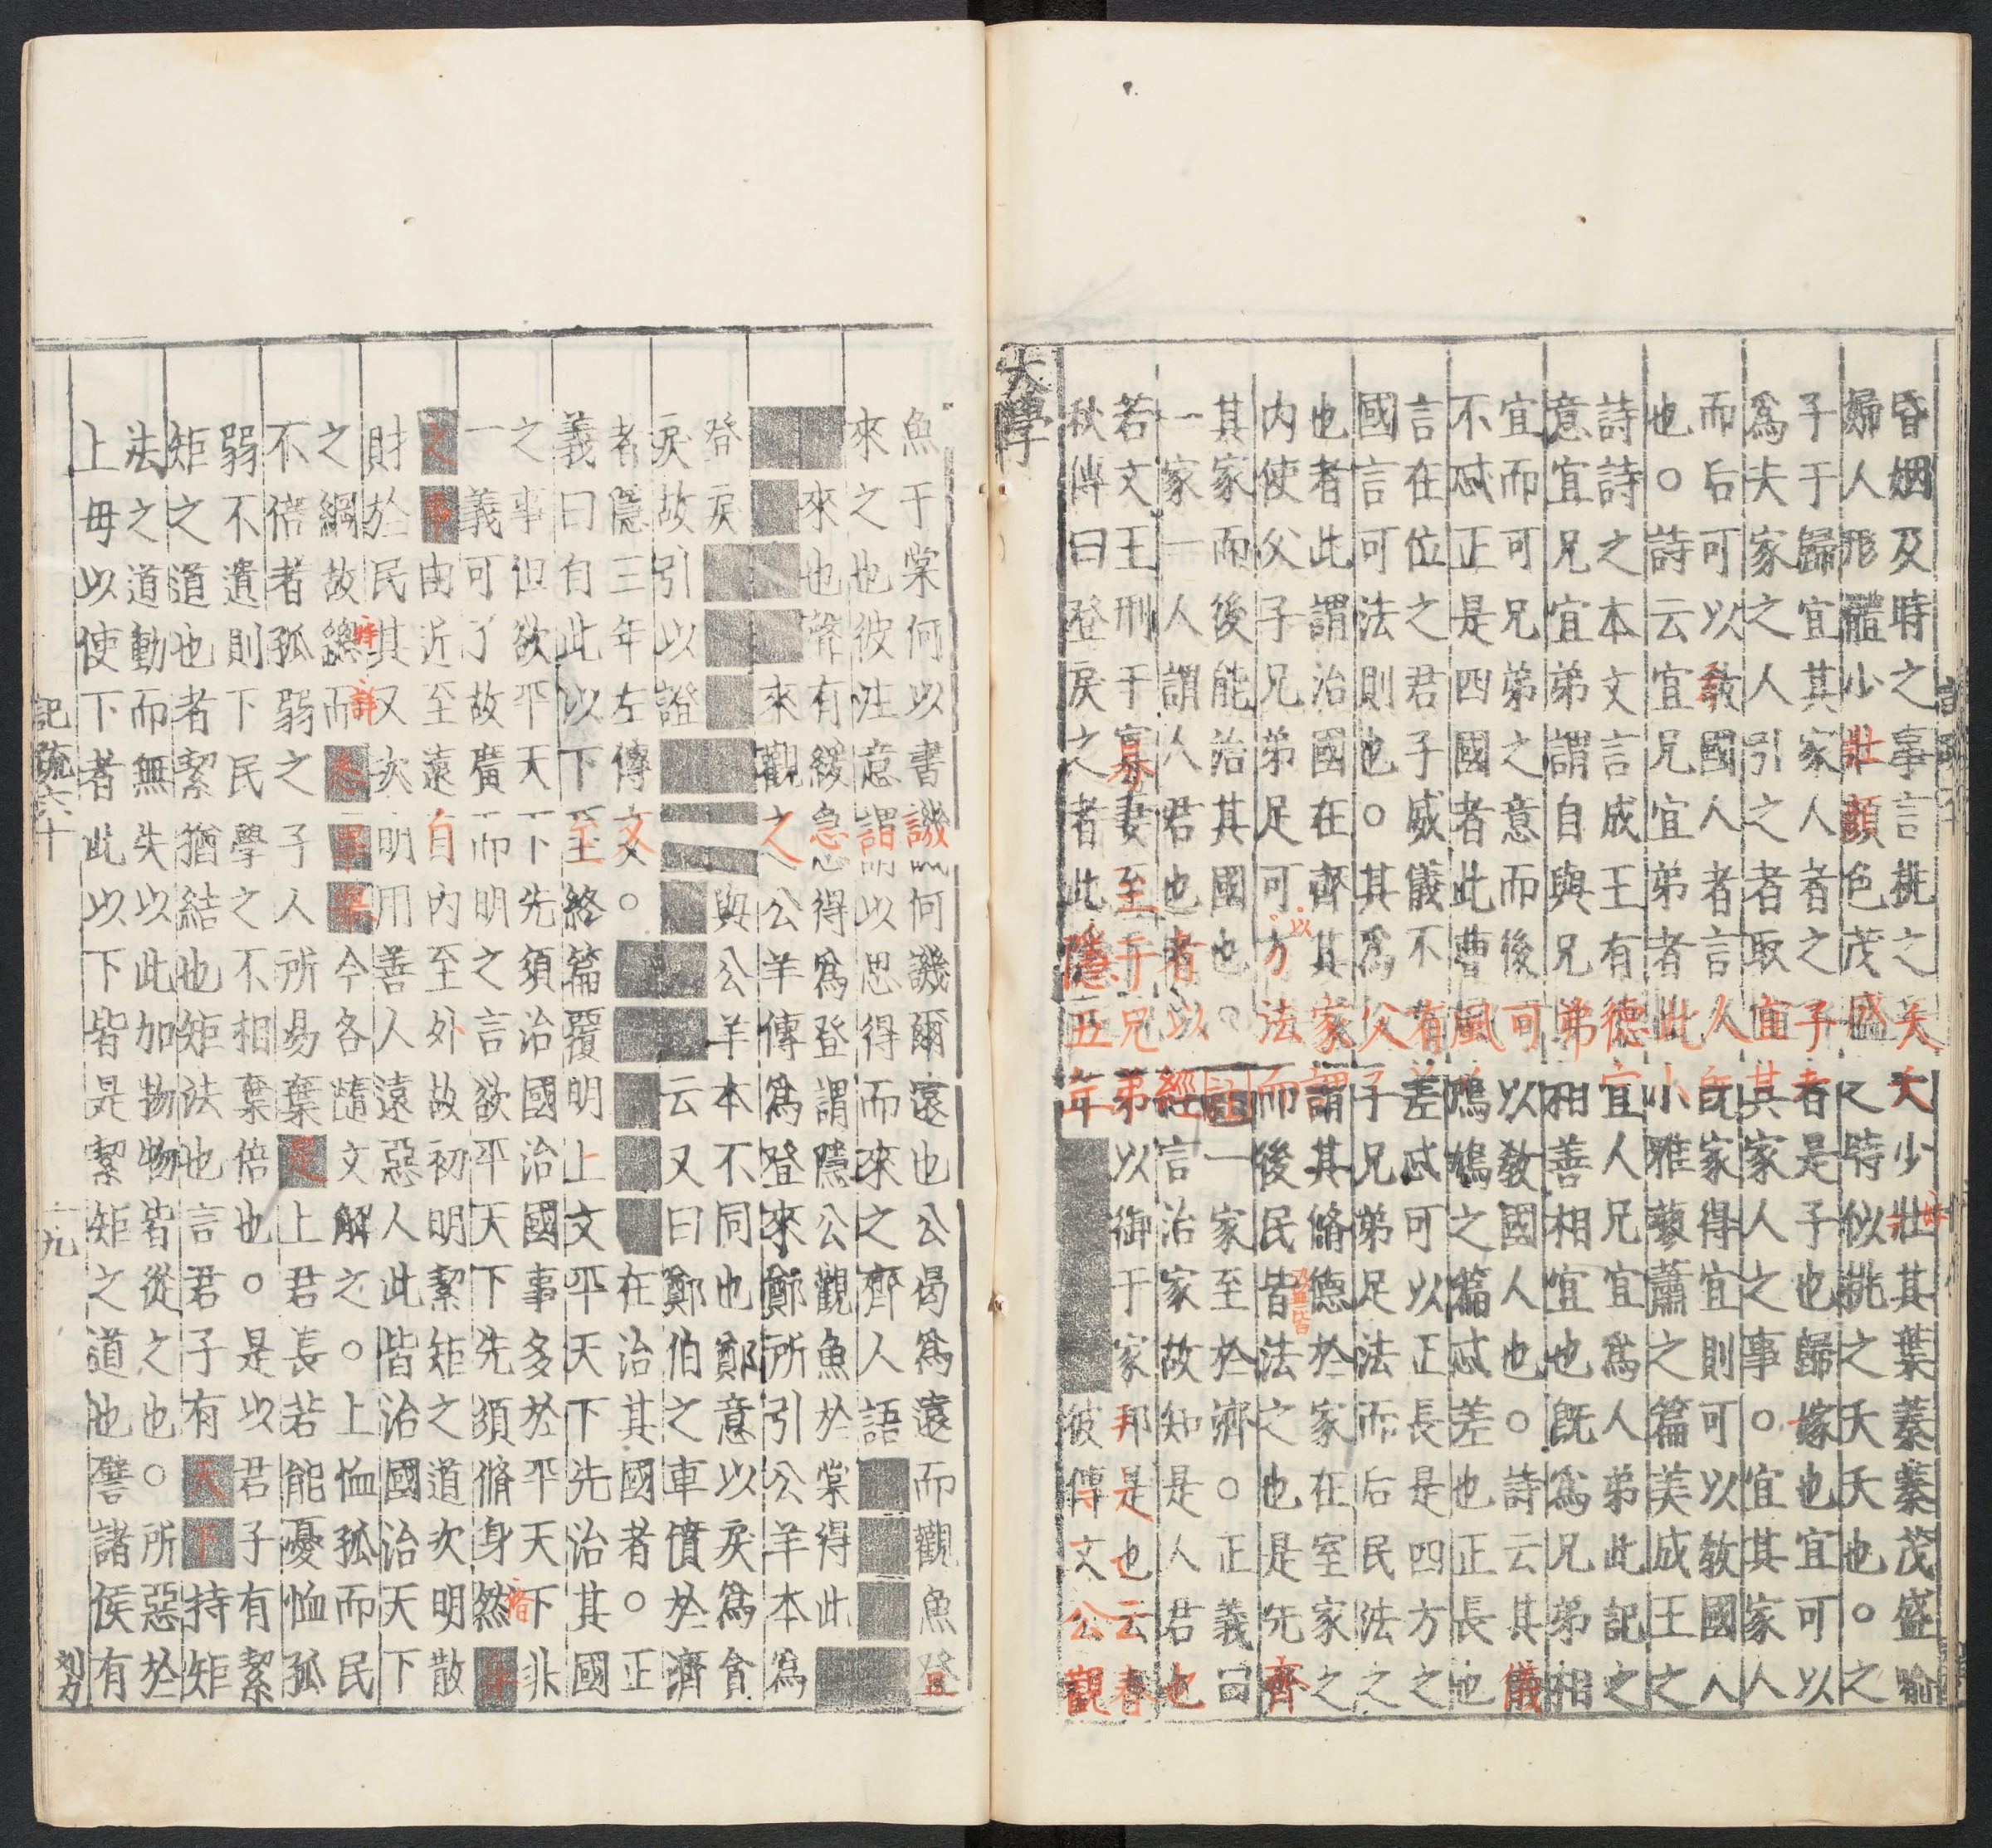 昏姻及時之事言桃之夭夭少壯其葉蓁蓁茂盛喻
婦人形體少壯顏色茂盛之時似桃之夭夭也○之
子于歸宜其家人者之子者是子也歸嫁也宜可以
爲夫家之人引之者取宜其家人之事○宜其家人
而后可以教國人者言人既家得宜則可以教國人
也○詩云宜兄宜弟者此小雅蓼蕭之篇美成王之
詩詩之本文言成王有德宜人兄宜爲人弟此記之
意宜兄宜弟謂自與兄弟相善相宜也既爲兄弟相
宜而可兄弟之意而後可以教國人也○詩云其儀
不忒正是四國者此曹風鳲鳩之篇忒差也正長也
言在位之君子威儀不有差忒可以正長是四方之
國言可法則也○其爲父子兄弟足法而后民法之
也者此謂治國在齊其家謂其脩德於家在室家之
内使父子兄弟足可方法而後民皆法之也是先齊
其家而後能治其國也○注一家至於濟○正義曰
一家一人謂人君也者以經言治家故知是人君也
若文王刑于寡妻至于兄弟以御于家邦是也云春
秋傳曰登戾之者此隱五年彼傳文公觀
大學
魚于棠何以書譏何譏爾遠也公曷爲遠而觀魚登
來之也彼注意謂以思得而來之齊人語
來也聲有緩急得爲登謂隱公觀魚於棠得此
來觀之公羊傳爲登來鄭所引公羊本爲
登戾與公羊本不同也鄭意以戾爲貪
戾故引以證云又曰鄭伯之車僨於濟
者隱三年左傳文○在治其國者○正
義曰自此以下至終篇覆明上文平天下先治其國
之事但欲平天下先須治國治國事多於平天下非
一義可了故廣而明之言欲平天下先須脩身然
之事由近至遠自内至外故初明絜矩之道次明散
財於民其又次明用善人遠惡人此皆治國治天下
之綱故緫而今各隨文解之○上恤孤而民
不倍者孤弱之子人所易棄是上君長若能憂恤孤
弱不遺則下民學之不相棄倍也○是以君子有絜
矩之道也者絜猶結也矩法也言君子有天下持矩
法之道動而無失以此加物物皆從之也○所惡於
上毋以使下者此以下皆是絜矩之道也譬諸侯有
記疏六十 十九